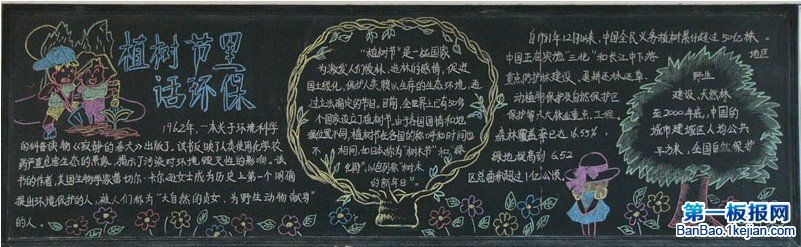 植树节里
话环保
1962年,一本关于环境科学
的科普读物《寂静的春天》出版了,该书反映了人类使用化学农
药严重危害生态的景象,揭示了污染对环境毁灭性的影响。该
书的作者,美国生物学家蕾切尔·卡尔逊女士成为历史上第一个明确
提出环境保护的人,被人们称为"大自然的贞女,为野生动物献身"
的人。
"植树节"是一些国家
为激发人们爱林、造林的感情,促进
国土绿化,保护人类赖以生存的生态环境,通
过立法确定的节日,目前,全世界上已有50多
个国家设立了植树节,由于各国国情和地
理位置不同,植树节在各国的称呼和时间也
不相同,如日本称为"树木节"和"绿
化周",以色列称"树木
的新年日"。
自1981年12月以来,中国全民义务植树累计超过50亿株。
中国正在实施"三北"和长江中下游地区
重点防护林建设、退耕还林还草、
动植物保护及自然保护区
保护等六大林业重点工程,
森林覆盖率已达16.55%。
绿地提高到6.52
区总面积超过1亿公顷。
野生
建设、天然林
至2000年底,中国的
城市建成区人均公共
平方米,全国自然保护
第一板报网
BanBao.1kejian.com